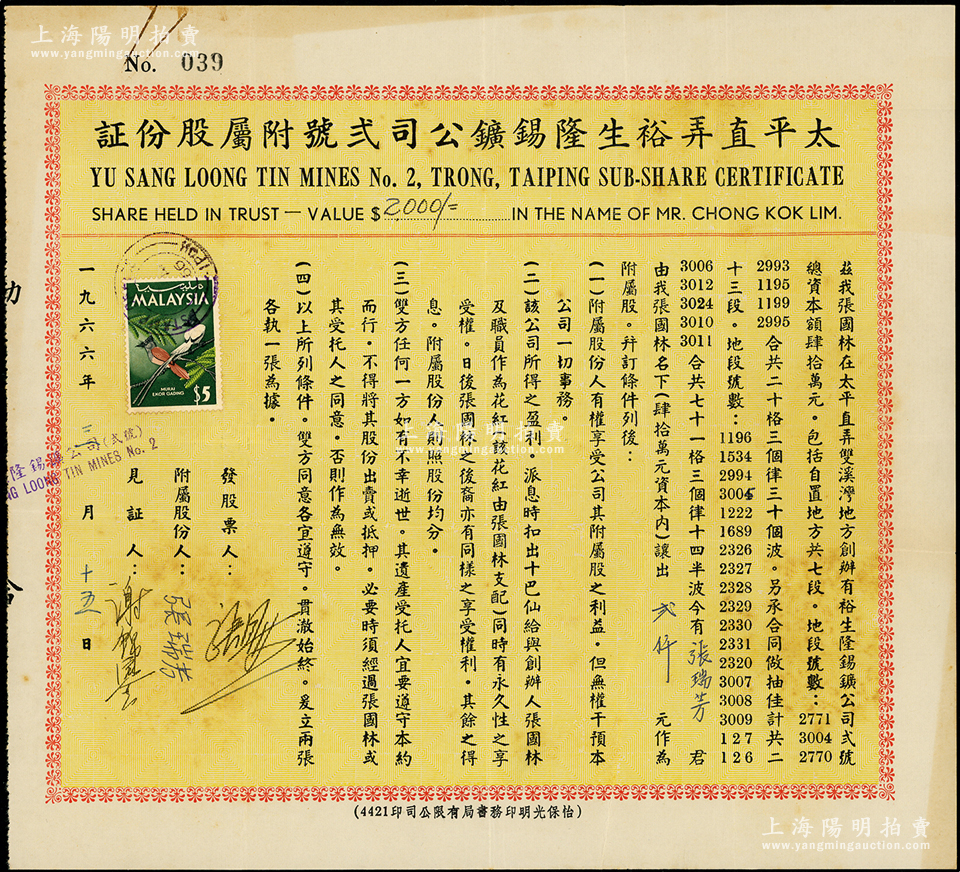 上海陽明拍賣
www.yangmingauction.com
No. 039
太平直弄裕生隆錫鑛公司弍號附屬股份証
YU SANG LOONG TIN MINES No. 2, TRONG, TAIPING SUB-SHARE CERTIFICATE
SHARE HELD IN TRUST — VALUE $ 2,000/= IN THE NAME OF MR. CHONG KOK LIM.
茲我張國林在太平直弄雙溪灣地方創辦有裕生隆錫鑛公司弍號
總資本額肆拾萬元。包括自置地方共七段。地段號數：2771 3004 2770
2993 1195 1199 2995 合共二十格三個律三十個波。另承合同做抽佳計共二
十三段。地段號數：1196 1534 2994 3005 1222 1689 2326 2327 2328 2329 2330 2331 2320 3007 3008 3009 127 126
3006 3012 3024 3010 3011 合共七十一格三個律十四半波今有 張瑞芳 君
由我張國林名下(肆拾萬元資本內)讓出 弍仟 元作為
附屬股。幷訂條件列後：
(一)附屬股份人有權享受公司其附屬股之利益。但無權干預本
公司一切事務。
(二)該公司所得之盈利 派息時扣出十巴仙給與創辦人張國林
及職員作為花紅(該花紅由張國林支配)同時有永久性之享
受權。日後張國林之後裔亦有同樣之享受權利。其餘之得
息。附屬股份人則照股份均分。
(三)雙方任何一方如有不幸逝世。其遺產受托人宜要遵守本約
而行。不得將其股份出賣或抵押。必要時須經過張國林或
其受托人之同意。否則作為無效。
(四)以上所列條件。雙方同意各宜遵守。貫澈始終。爰立兩張
各執一張為據。
發股票人：
附屬股份人： 張瑞芳
見証人：
一九六六年 三 月 十五 日
MALAYSIA
MURAI
EKOR GADING
$5
隆錫鑛公司(弍號)
NG LOONG TIN MINES No. 2
上海陽明拍賣
www.yangmingauction.com
(怡保光明印務書局有限公司印4421)
上海陽明拍賣
www.yangmingauction.com